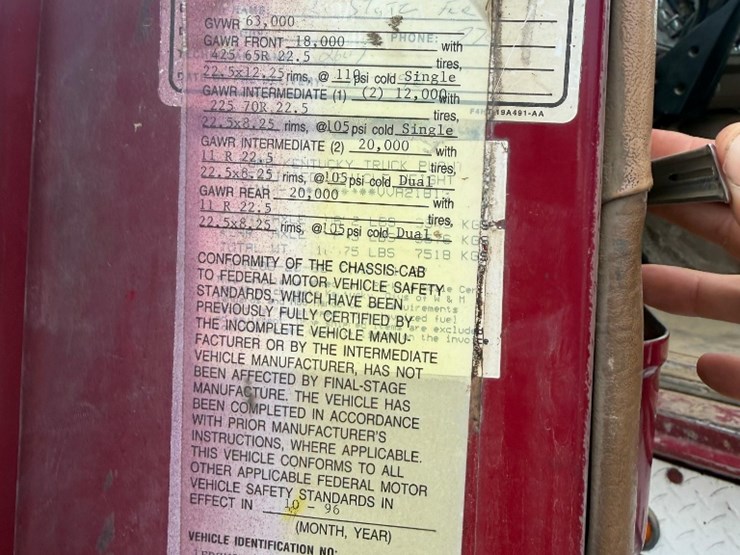 GVWR 63,000
GAWR FRONT 18,000 with
425 65R 22.5 tires,
22.5x12.25 rims, @ 110 psi cold Single
GAWR INTERMEDIATE (1) (2) 12,000 with
225 70R 22.5 tires,
22.5x8.25 rims, @105 psi cold Single
GAWR INTERMEDIATE (2) 20,000 with
11 R 22.5 tires,
22.5x8.25 rims, @105 psi cold Dual
GAWR REAR 20,000 with
11 R 22.5 tires,
22.5x8.25 rims, @105 psi cold Dual
CONFORMITY OF THE CHASSIS-CAB
TO FEDERAL MOTOR VEHICLE SAFETY
STANDARDS, WHICH HAVE BEEN
PREVIOUSLY FULLY CERTIFIED BY
THE INCOMPLETE VEHICLE MANU-
FACTURER OR BY THE INTERMEDIATE
VEHICLE MANUFACTURER, HAS NOT
BEEN AFFECTED BY FINAL-STAGE
MANUFACTURE. THE VEHICLE HAS
BEEN COMPLETED IN ACCORDANCE
WITH PRIOR MANUFACTURER'S
INSTRUCTIONS, WHERE APPLICABLE.
THIS VEHICLE CONFORMS TO ALL
OTHER APPLICABLE FEDERAL MOTOR
VEHICLE SAFETY STANDARDS IN
EFFECT IN 10 - 96
(MONTH, YEAR)
VEHICLE IDENTIFICATION NO:
PHONE:
19A491-AA
KENTUCKY TRUCK
LBS 7518 KG